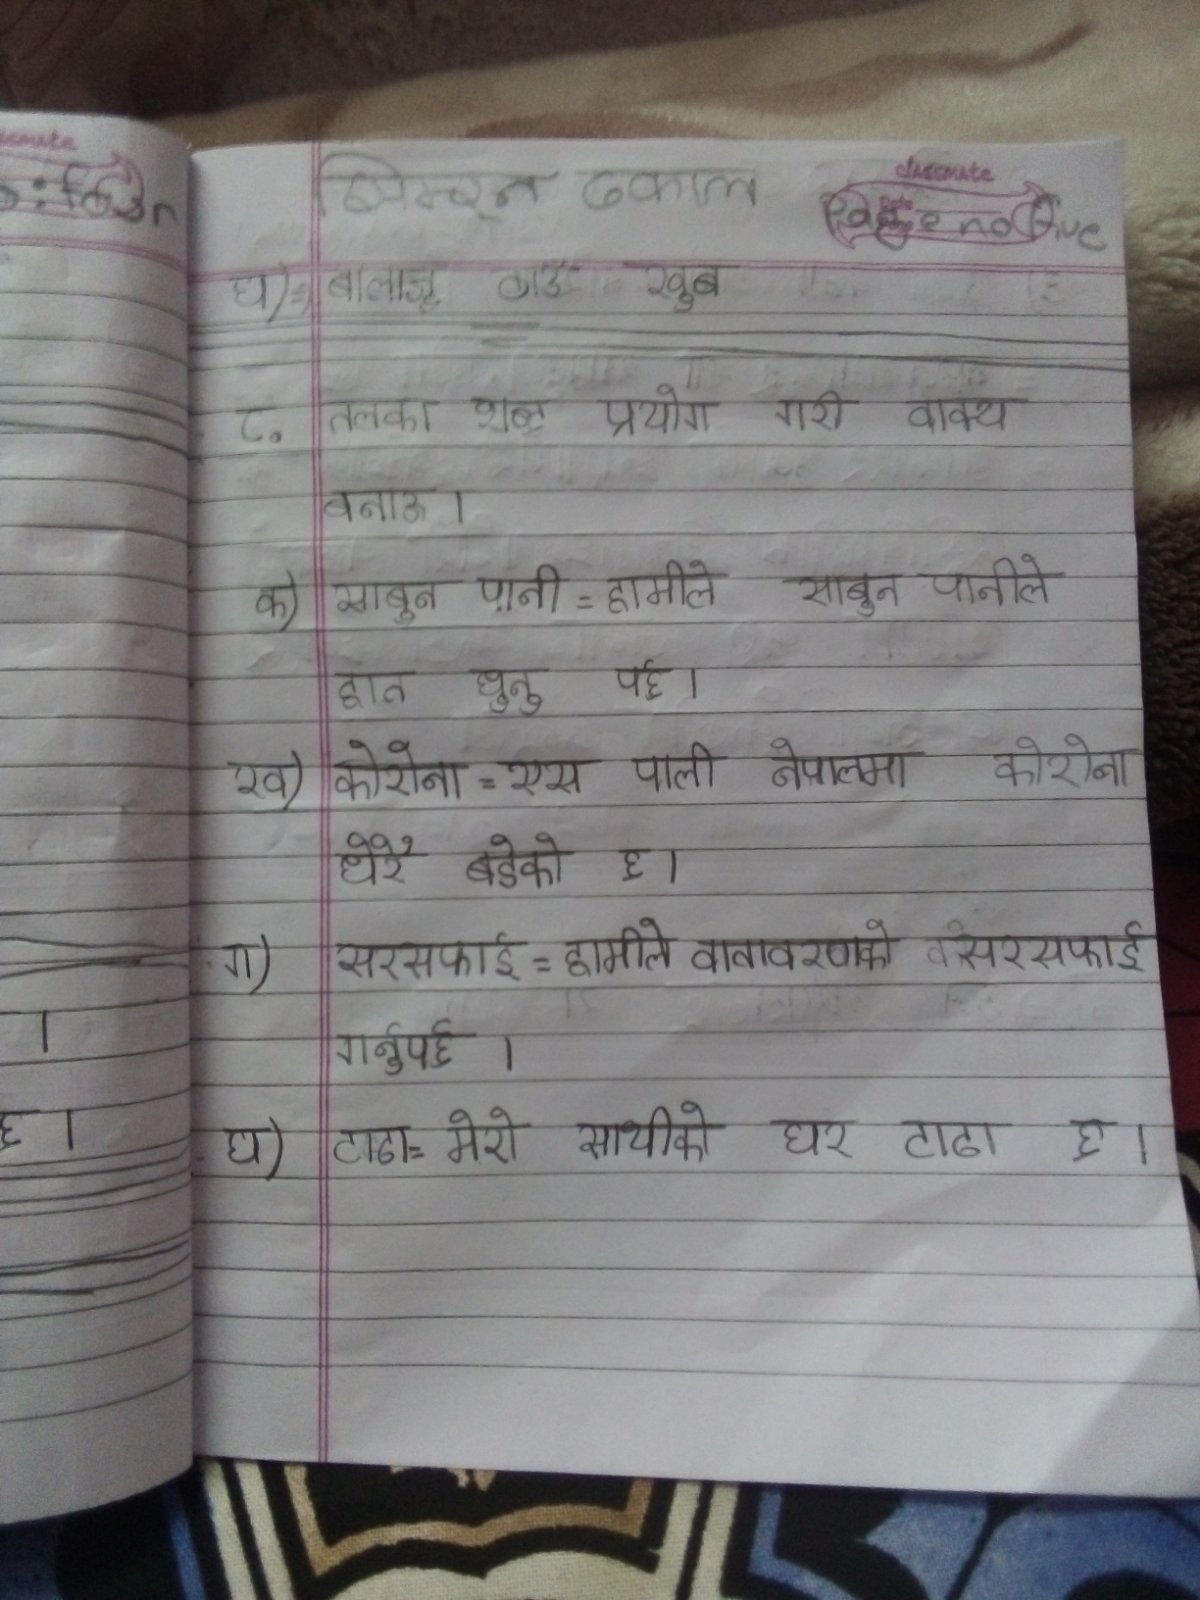 classmate
सिमरन ढकाल
Page no Five
घ)⇒ बालाजु ठाउँ खुब
८. तलका शब्द प्रयोग गरी वाक्य
बनाऊ ।
क) साबुन पानी = हामीले साबुन पानीले
हात धुनु पर्छ ।
ख) कोरोना = एस पाली नेपालमा कोरोना
धेरै बडेको छ ।
ग) सरसफाई = हामीले वातावरणको सरसफाई
गर्नुपर्छ ।
घ) टाढा = मेरो साथीको घर टाढा छ ।